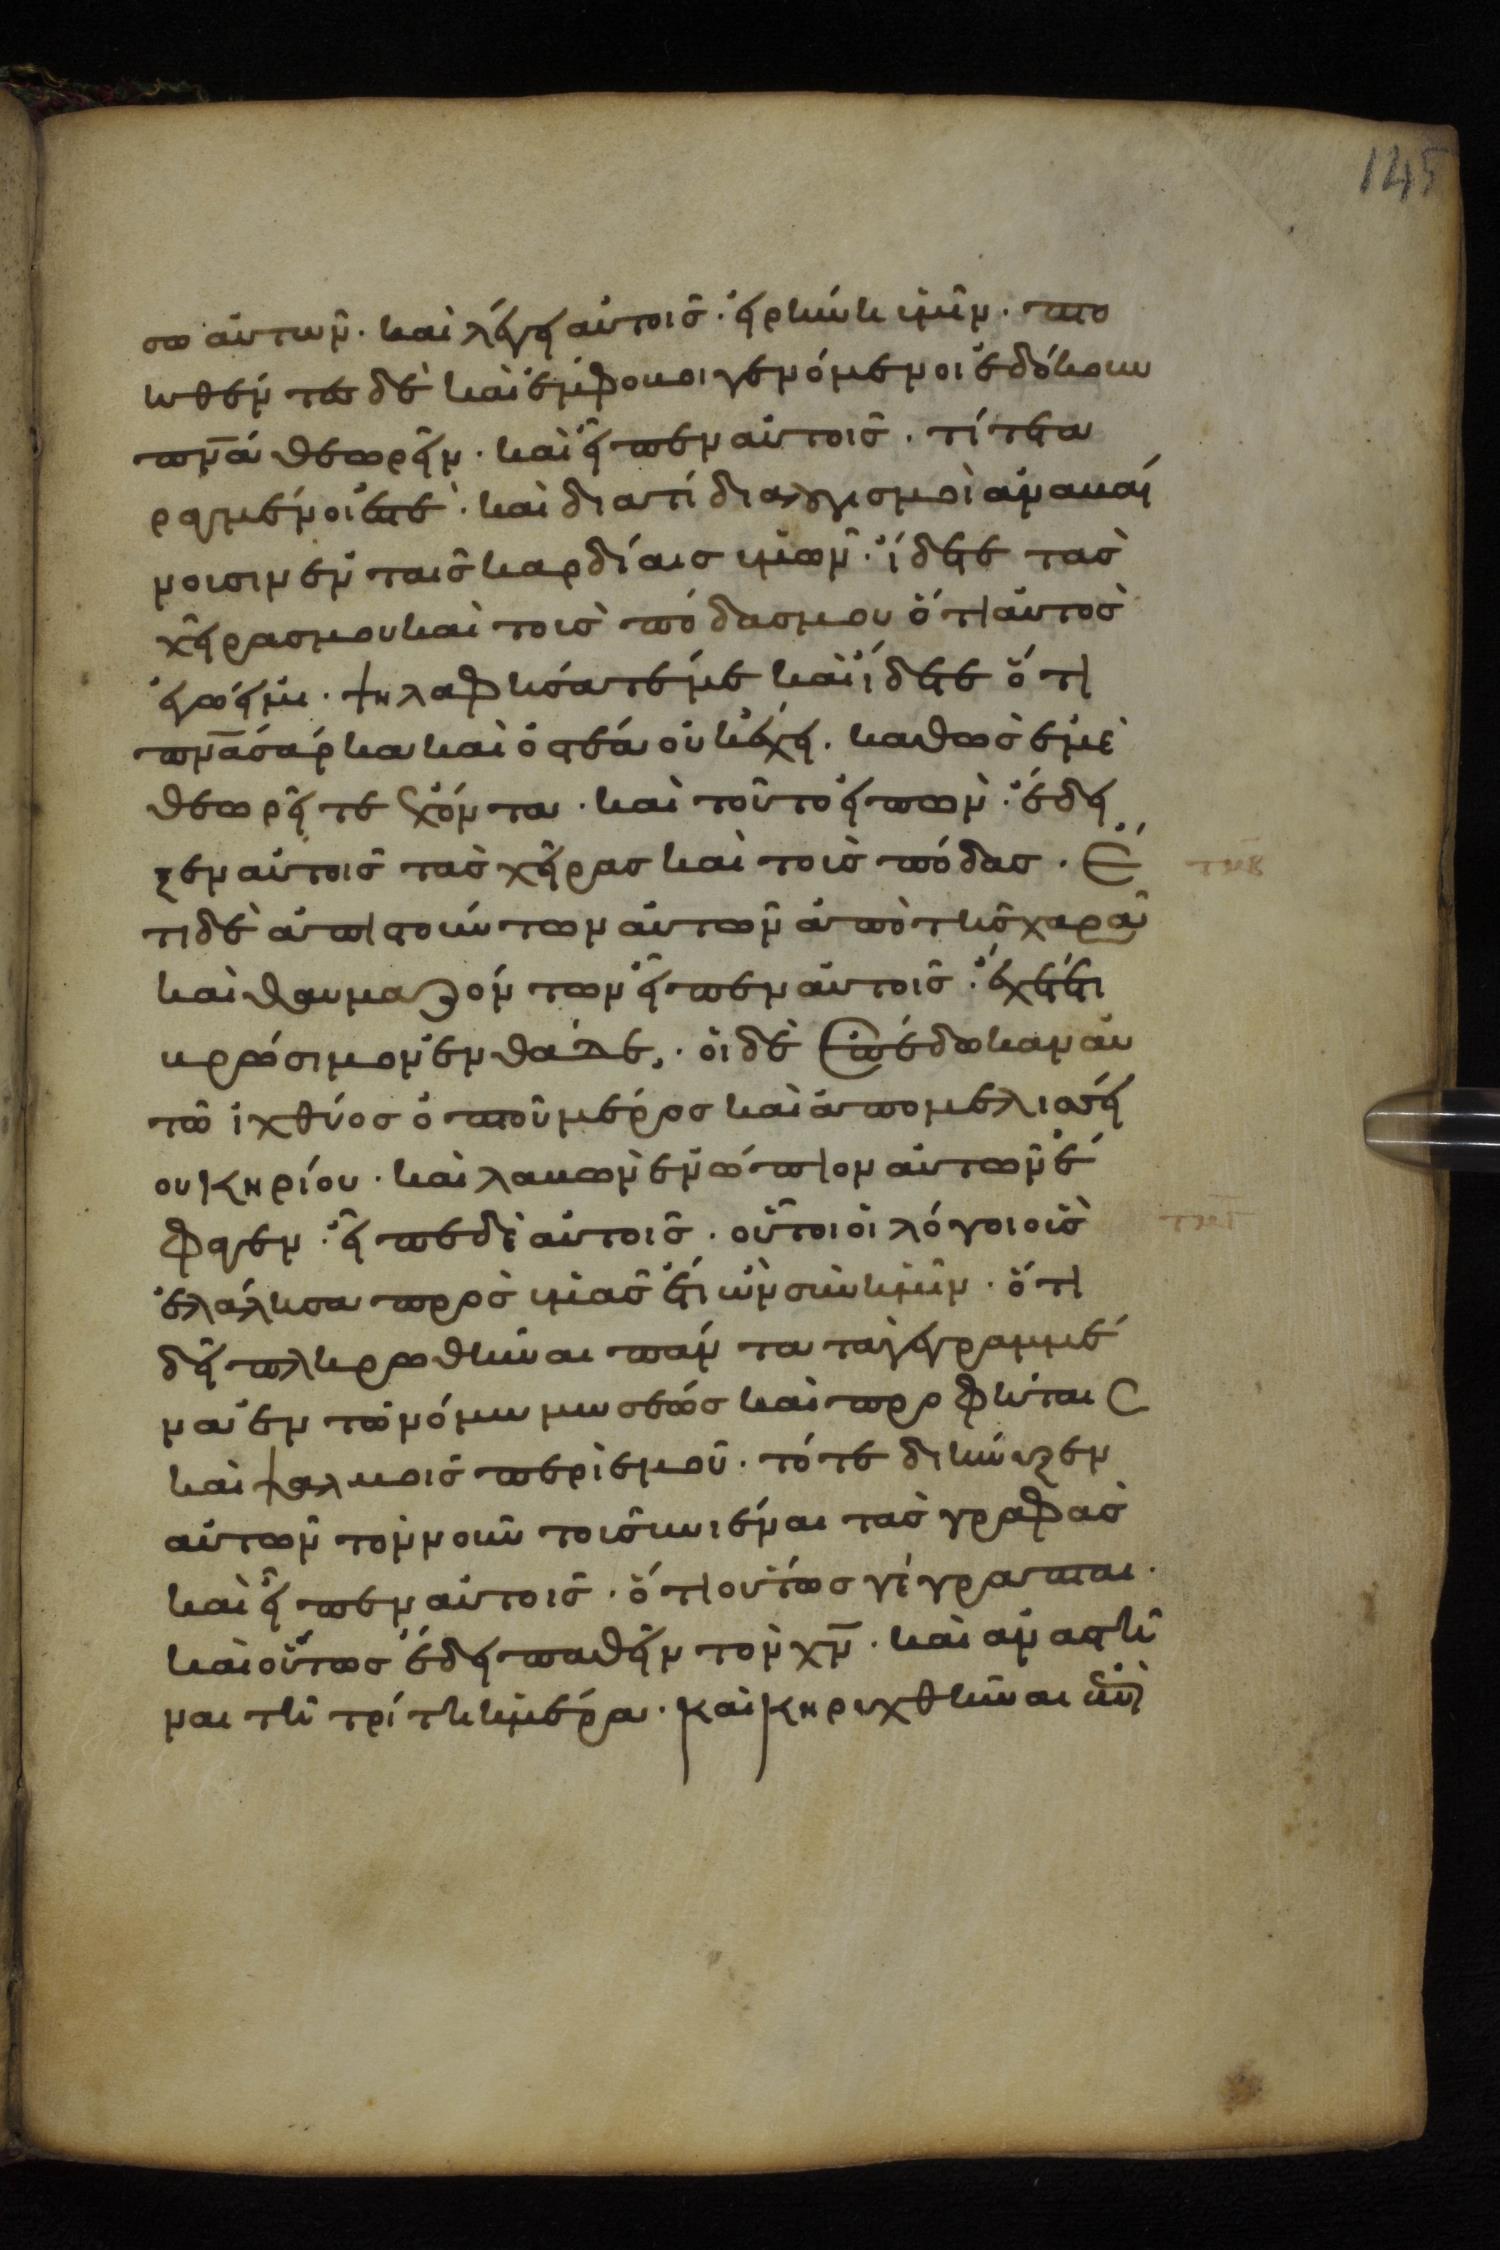 145
σω αὐτῶν· καὶ λέγει αὐτοῖς· εἰρήνη ὑμῖν· πτο
ηθέντες δὲ καὶ ἔμφοβοι γενόμενοι ἐδόκουν
πνᾶ θεωρεῖν· καὶ εἶπεν αὐτοῖς· τί τετα
ραγμένοι ἐστὲ· καὶ διατί διαλογισμοὶ ἀναβαί
νουσιν ἐν ταῖς καρδίαις ὑμῶν· ἴδετε τὰς
χεῖρας μου καὶ τοὺς πόδας μου ὅτι αὐτὸς
ἐγώ εἰμι· ψηλαφήσατέ με καὶ ἴδετε ὅτι
πνᾶ σάρκα καὶ ὀστέα οὐκ ἔχει· καθὼς ἐμὲ
θεωρεῖτε ἔχοντα· καὶ τοῦτο εἰπὼν· ἔδει
ξεν αὐτοῖς τὰς χεῖρας καὶ τοὺς πόδας· Ἔ
τι δὲ ἀπιστούντων αὐτῶν ἀπὸ τῆς χαρᾶς
καὶ θαυμαζόντων εἶπεν αὐτοῖς· ἔχετέ τι
βρώσιμον ἐνθάδε,· οἱ δὲ ἐπέδωκαν αὐ
τῶ ἰχθύος ὀπτοῦ μέρος καὶ ἀπὸ μελισσεί
ου κηρίου· καὶ λαβὼν ἐνώπιον αὐτῶν ἔ
φαγεν· εἶπε δὲ αὐτοῖς· οὗτοι οἱ λόγοι οὓς
ἐλάλησα πρὸς ὑμᾶς ἔτι ὢν σὺν ὑμῖν· ὅτι
δεῖ πληρωθῆναι πάντα τὰ γεγραμμέ
να ἐν τῶ νόμω μωσέως καὶ προφήταις
καὶ ψαλμοῖς περὶ ἐμοῦ· τότε διήνοιξεν
αὐτῶν τὸν νοῦν τοῦ συνιέναι τὰς γραφὰς
καὶ εἶπεν αὐτοῖς· ὅτι οὕτως γέγραπται·
καὶ οὕτως ἔδει παθεῖν τὸν χν̄· καὶ ἀναστῆ
ναι τῆ τρίτη ἡμέρα· καὶ κηρυχθῆναι ἐπὶ